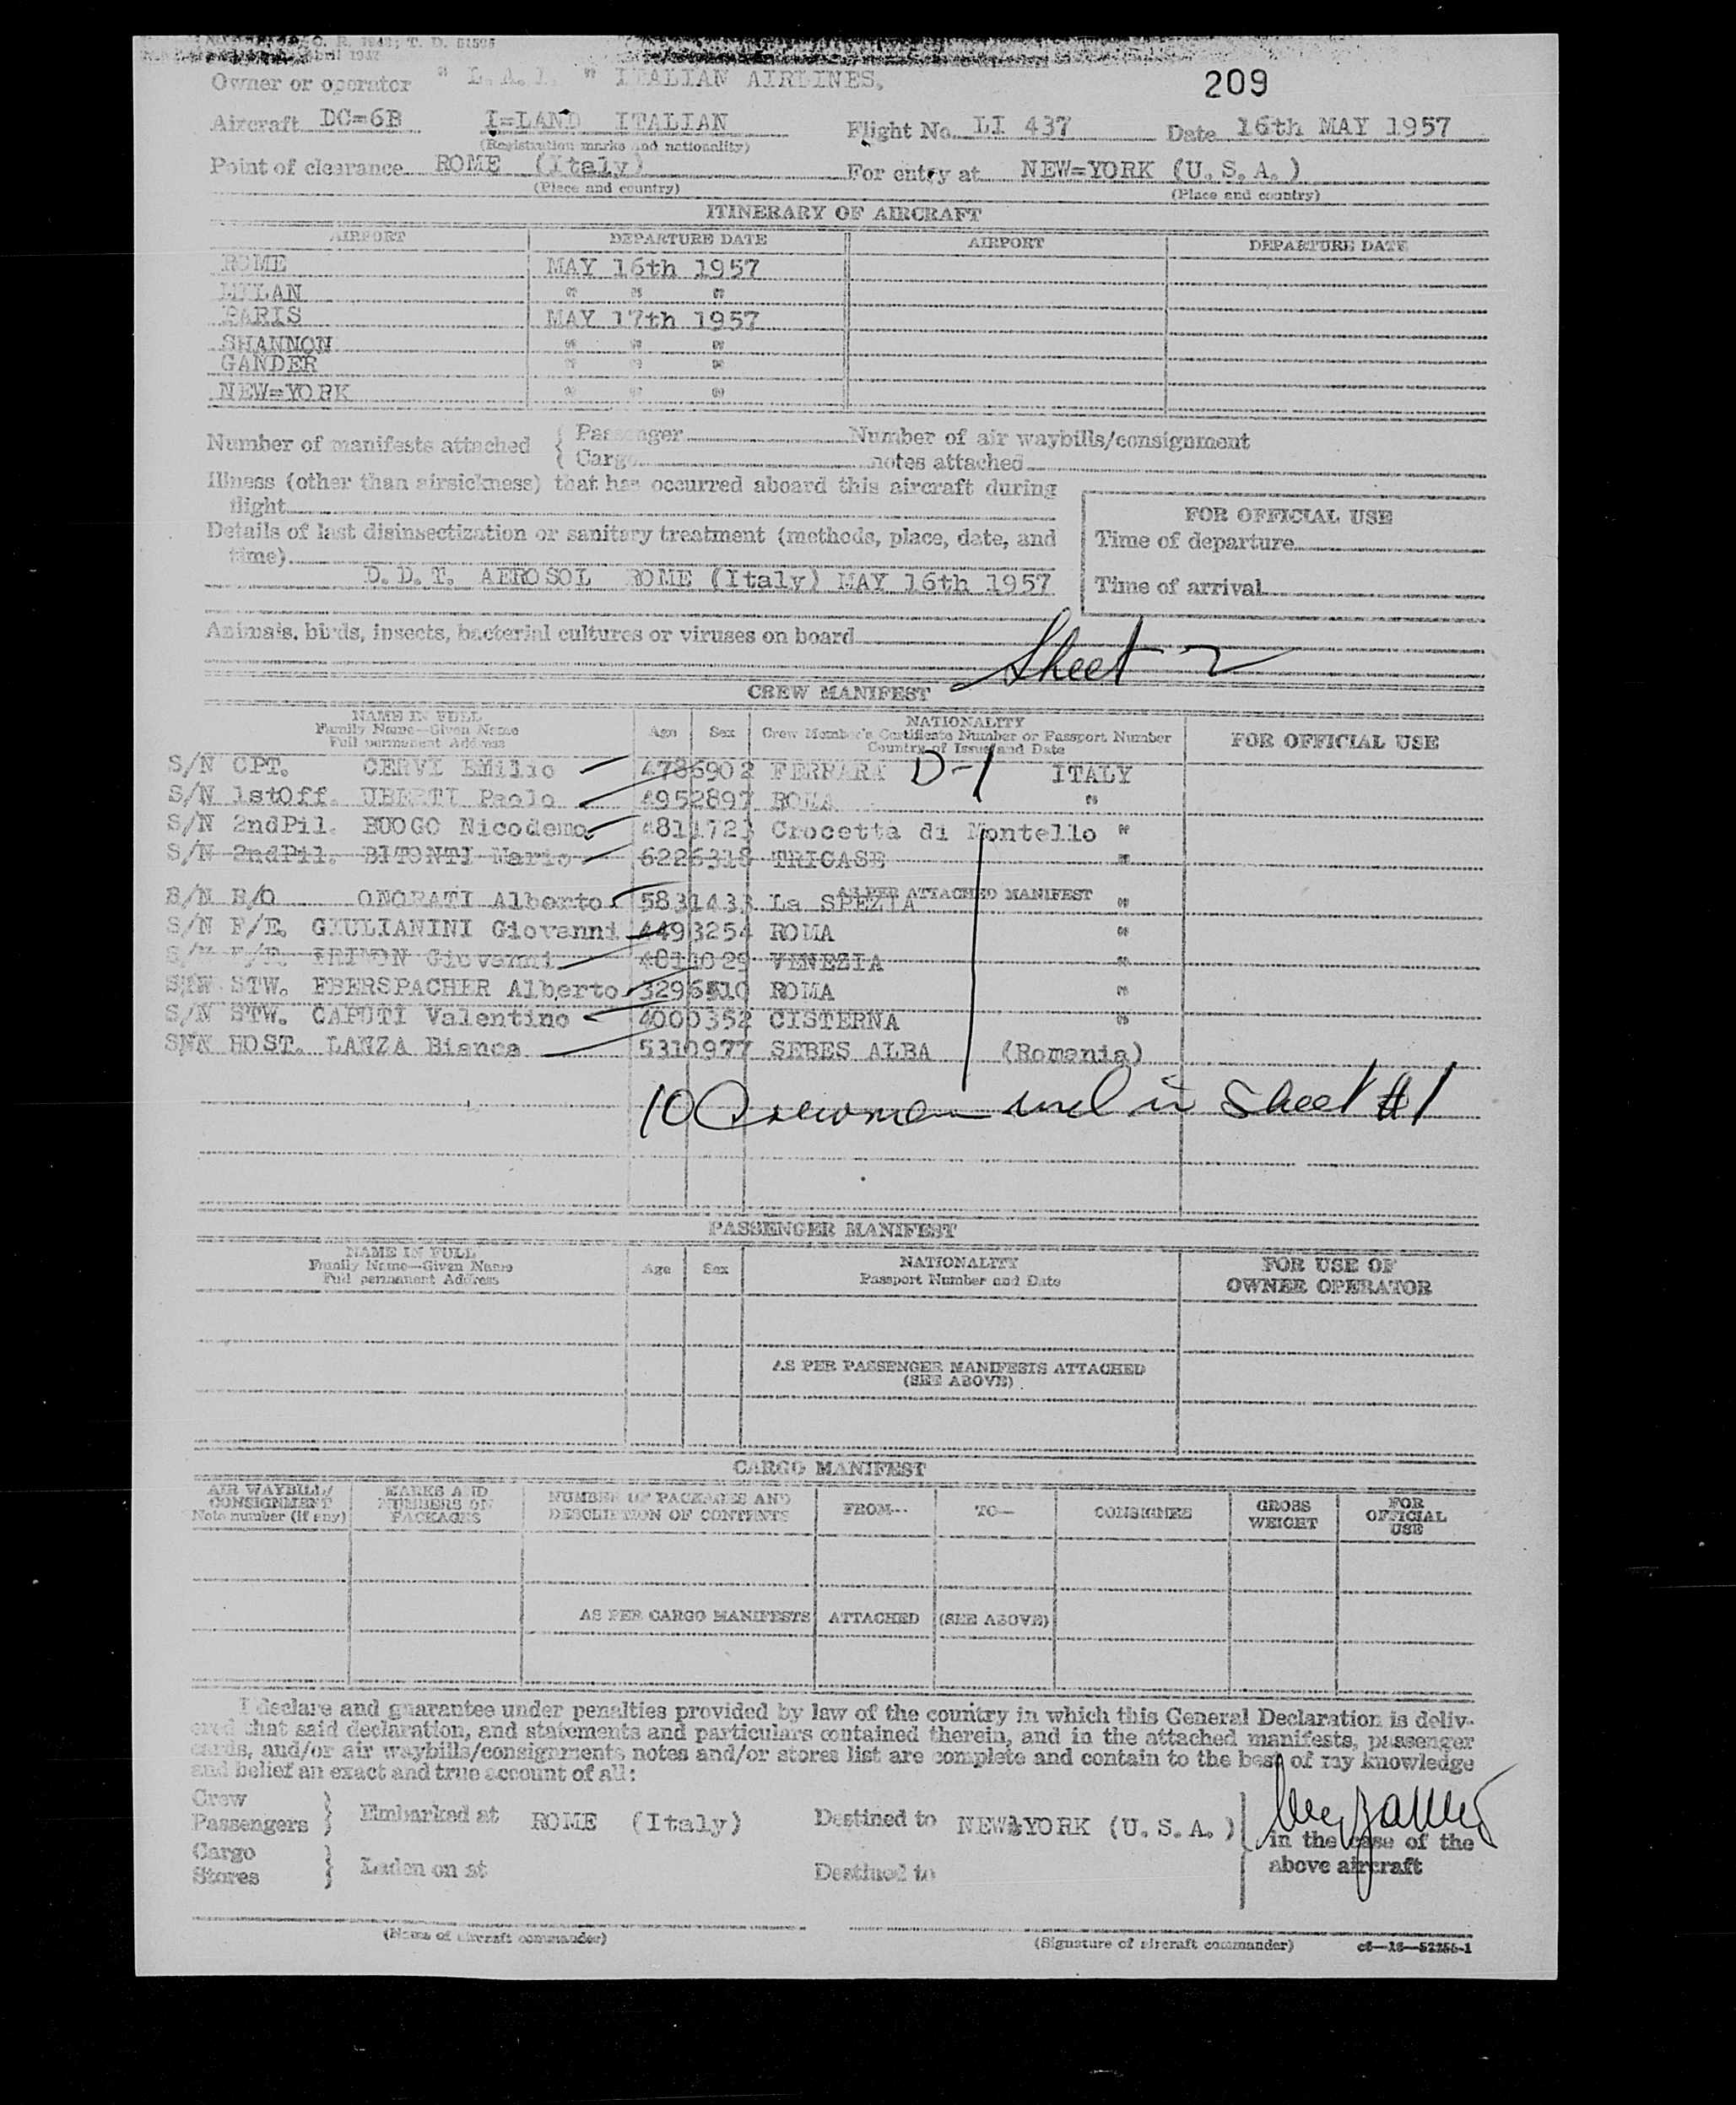 O. R. 1942; T. D. 51595
Owner or operator " L. A. I. " ITALIAN AIRLINES. 209
Aircraft DC=6B I=LAND ITALIAN Flight No. LI 437 Date 16th MAY 1957
(Registration marks and nationality)
Point of clearance ROME (Italy) For entry at NEW=YORK (U.S.A.)
(Place and country) (Place and country)
ITINERARY OF AIRCRAFT
AIRPORT DEPARTURE DATE AIRPORT DEPARTURE DATE
ROME MAY 16th 1957
MILAN " " "
PARIS MAY 17th 1957
SHANNON " " "
GANDER " " "
NEW=YORK " " "
Number of manifests attached { Passenger Number of air waybills/consignment
{ Cargo notes attached
Illness (other than airsickness) that has occurred aboard this aircraft during
flight
FOR OFFICIAL USE
Details of last disinsectization or sanitary treatment (methods, place, date, and
time)
Time of departure
D.D.T. AEROSOL ROME (Italy) MAY 16th 1957
Time of arrival
Animals, birds, insects, bacterial cultures or viruses on board
Sheet 2
CREW MANIFEST
NAME IN FULL
Family Name—Given Name
Full permanent Address
Age Sex
NATIONALITY
Crew Member's Certificate Number or Passport Number
Country of Issue and Date
FOR OFFICIAL USE
S/N CPT. CERVI Emilio 4786902 FERRARA D-1 ITALY
S/N 1stOff. UBERTI Paolo 4952897 ROMA "
S/N 2ndPil. BUOGO Nicodemo 4811723 Crocetta di Montello "
S/N 2ndPil. BITONTI Mario 6226318 TRICASE "
AS PER ATTACHED MANIFEST
S/N R/O ONORATI Alberto 5831433 La SPEZIA "
S/N F/E. GIULIANINI Giovanni 4493254 ROMA "
S/N F/E. Giovanni 4811029 VENEZIA "
STW. EBERSPACHER Alberto 3296510 ROMA "
S/N STW. CAPUTI Valentino 4000352 CISTERNA "
HOST. LANZA Bianca 5310977 SEBES ALBA (Romania)
10 Crewmen incl in Sheet #1
PASSENGER MANIFEST
NAME IN FULL
Family Name—Given Name
Full permanent Address
Age Sex
NATIONALITY
Passport Number and Date
FOR USE OF
OWNER OPERATOR
AS PER PASSENGER MANIFESTS ATTACHED
(SEE ABOVE)
CARGO MANIFEST
AIR WAYBILL/
CONSIGNMENT
Note number (if any)
MARKS AND
NUMBERS ON
PACKAGES
NUMBER OF PACKAGES AND
DESCRIPTION OF CONTENTS
FROM—
TO—
CONSIGNEE
GROSS
WEIGHT
FOR
OFFICIAL
USE
AS PER CARGO MANIFESTS ATTACHED (SEE ABOVE)
I declare and guarantee under penalties provided by law of the country in which this General Declaration is deliv-
ered that said declaration, and statements and particulars contained therein, and in the attached manifests, passenger
cards, and/or air waybills/consignments notes and/or stores list are complete and contain to the best of my knowledge
and belief an exact and true account of all:
Crew
Passengers } Embarked at ROME (Italy) Destined to NEW=YORK (U.S.A.)
in the case of the
above aircraft
Cargo
Stores } Laden on at Destined to
(Name of aircraft commander) (Signature of aircraft commander) c6—16—52255-1